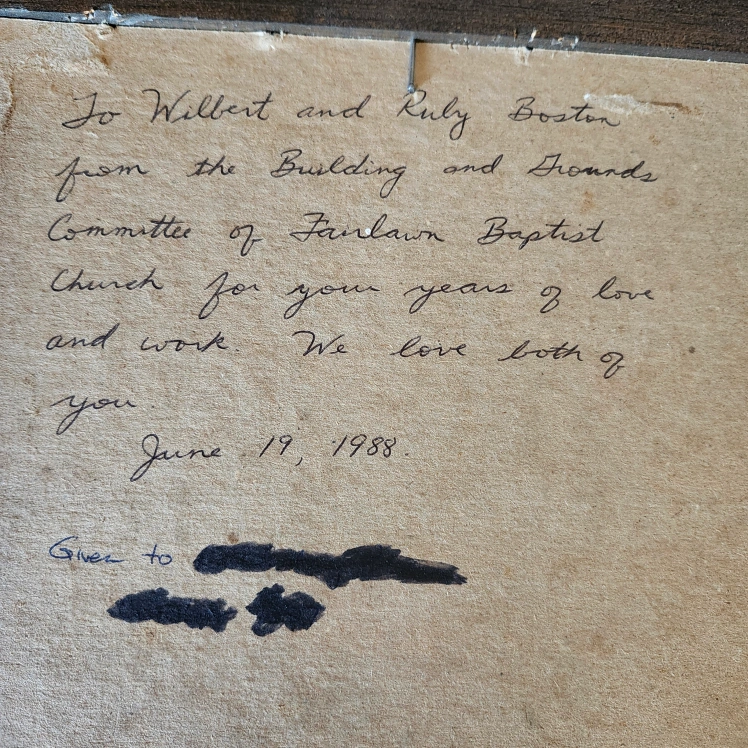 To Wilbert and Ruby Boston
from the Building and Grounds
Committee of Fairlawn Baptist
Church for your years of love
and work. We love both of
you.
June 19, 1988.
Given to